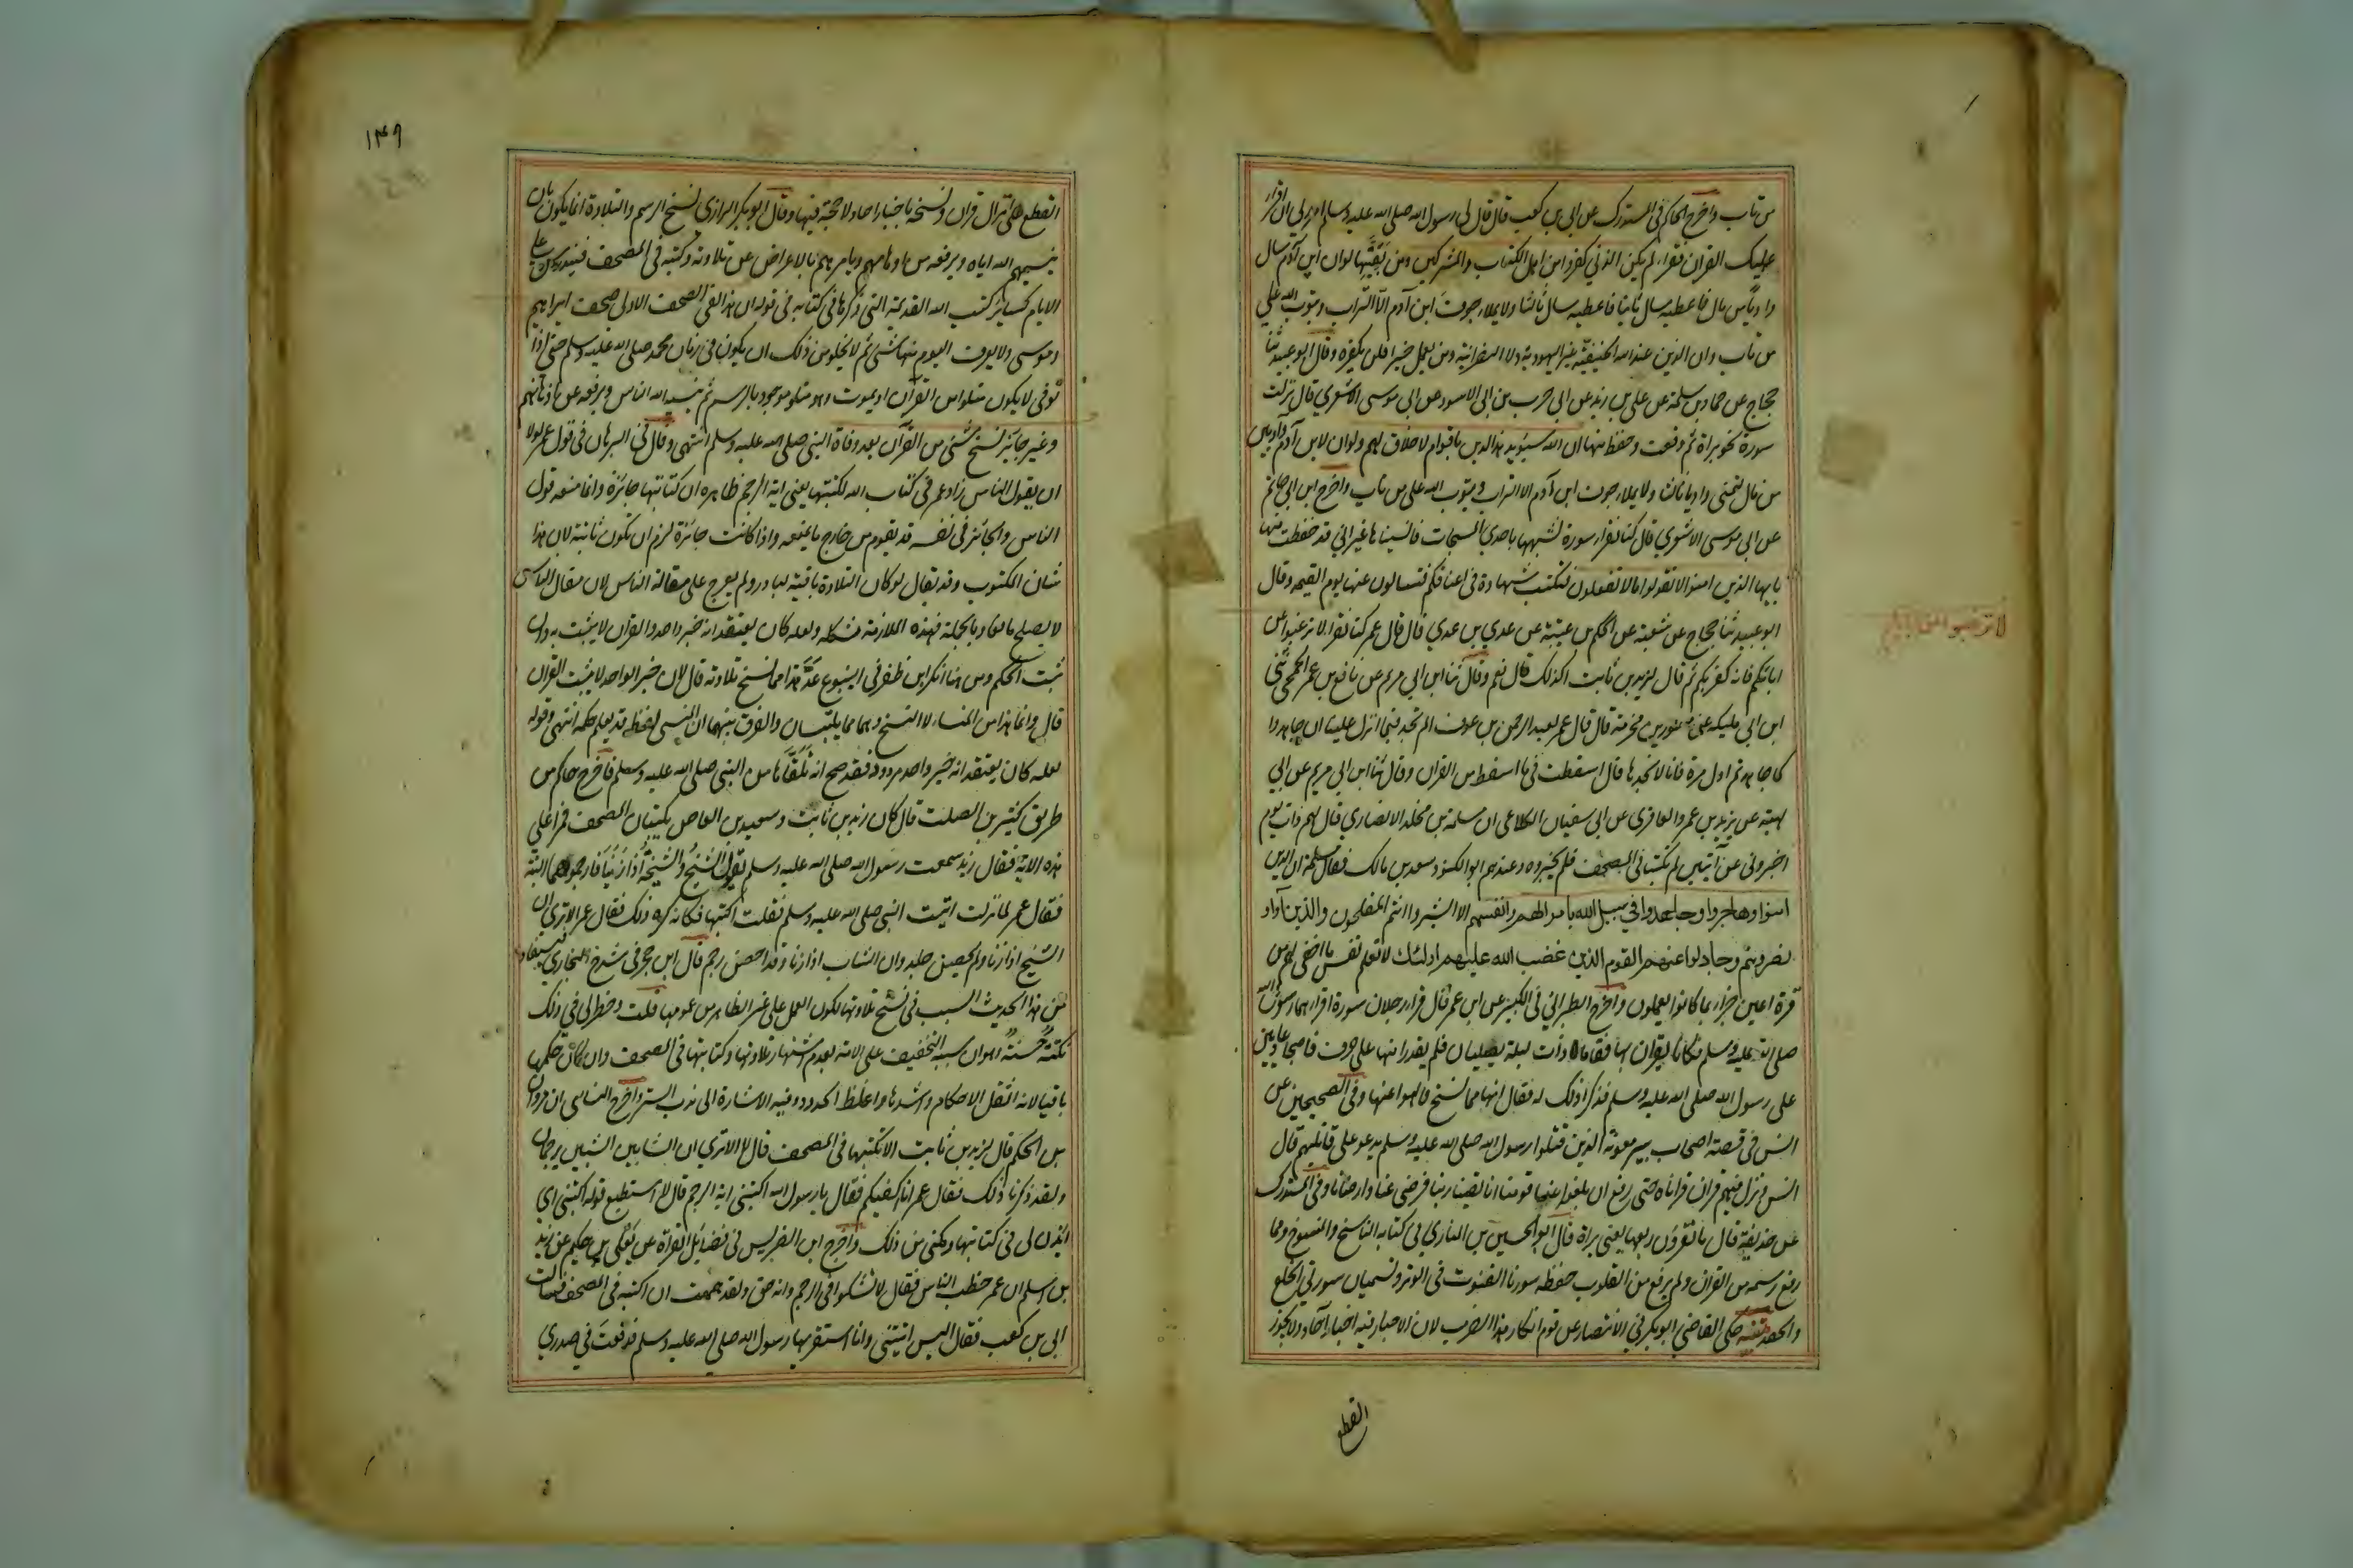 من تاب واخرج الحاكم فى المستدرك عن ابى بن كعب قال قال لى رسول الله صلى الله عليه وسلم امرني ان اقرأ
عليك القران فقرأ لم يكن الذين كفروا من اهل الكتاب والمشركين ومن بقيتها لو ان ابن آدم سال
واديا من مال فاعطيه سال ثانيا فاعطيه سال ثالثا ولا يملاء جوف ابن آدم الا التراب ويتوب الله على
من تاب وان الدين عند الله الحنيفية غير اليهودية ولا النصرانية ومن يعمل خيرا فلن يكفره وقال ابو عبيد ثنا
حجاج عن حماد بن سلمة عن على بن زيد عن ابى حرب بن ابى الاسود عن ابى موسى الاشعري قال نزلت
سورة نحو براة ثم رفعت وحفظ منها ان الله سيؤيد هذا الدين باقوام لا خلاق لهم ولو ان لابن آدم واديين
من مال لتمنى واديا ثالثا ولا يملاء جوف ابن آدم الا التراب ويتوب الله على من تاب واخرج ابن ابى حاتم
عن ابى موسى الاشعري قال كنا نقراء سورة نشبهها باحدي المسبحات فانسيناها غير اني قد حفظت منها
يايها الذين امنوا لا تقولوا ما لا تفعلون فتكتب شهادة فى اعناقكم فتسالون عنها يوم القيمة وقال
ابو عبيد ثنا حجاج عن شعبة عن الحكم بن عيينة عن عدي بن عدي قال قال عمر كنا نقرأ لا ترغبوا عن
ابائكم فانه كفر بكم ثم قال لزيد بن ثابت اكذلك قال نعم وقال ثنا ابن ابى مريم عن نافع بن عمر الجمحي ثنى
ابن ابى مليكه عن مسور بن مخرمة قال قال عمر لعبد الرحمن بن عوف الم تجد فيما انزل علينا ان جاهدوا
كما جاهدتم اول مرة فانا لا نجدها قال اسقطت فى ما اسقط من القران وقال ثنا ابن ابى مريم عن ابى
لهيعة عن يزيد بن عمرو المعافري عن ابى سفيان الكلاعى ان مسلمة بن مخلد الانصاري قال لهم ذات يوم
اخبرونى عن آيتين لم تكتبا فى المصحف فلم يخبروه وعندهم ابو الكنود سعد بن مالك فقال مسلمة ان الذين
امنوا وهاجروا وجاهدوا في سبيل الله باموالهم وانفسهم الا ابشروا انتم المفلحون والذين آووا و
نصروهم وجادلوا عنهم القوم الذين غضب الله عليهم اولئك لا تعلم نفس ما اخفى لهم من
قرة اعين جزاء بما كانوا يعملون واخرج الطبرانى فى الكبير عن ابن عمر قال قراء رجلان سورة اقراهما رسول الله
صلى الله عليه وسلم فكانا يقران بها فقاما ذات ليلة يصليان فلم يقدرا منها على حرف فاصبحا غاديين
على رسول الله صلى الله عليه وسلم فذكرا ذلك له فقال انها مما نسخ فالهوا عنها وفى الصحيحين عن
انس فى قصة اصحاب بير معونة الذين قتلوا رسول الله صلى الله عليه وسلم يدعو على قاتليهم قال
انس نزل فيهم قران قراناه حتى رفع ان بلغوا عنا قومنا انا لقينا ربنا فرضى عنا وارضانا وفى المستدرك
عن حذيفة قال ما تقرؤن ربعها يعنى براة قال ابو الحسين بن المنادي فى كتابه الناسخ والمنسوخ ومما
رفع رسمه من القران ولم يرفع من القلوب حفظه سورتا القنوت فى الوتر وتسميان سورتي الخلع
والحفد تنبيه حكى القاضى ابو بكر فى الانتصار عن قوم انكار هذا الضرب لان الاخبار فيه اخبار آحاد ولا يجوز
القطع
لا ترغبوا عن ابائكم
١٤٩
القطع على انزال قران ونسخه باخبار احاد لا حجة فيها وقال ابو بكر الرازي نسخ الرسم والتلاوة انما يكون بان
ينسيهم الله اياه ويرفعه من اوهامهم ويامرهم بالاعراض عن تلاوته وكتبه فى المصحف فيندرس على
الايام كساير كتب الله القديمة التي ذكرها فى كتابه فى قوله ان هذا لفى الصحف الاولى صحف ابراهيم
وموسى ولا يعرف اليوم منها شئ ثم لا يخلو من ذلك ان يكون فى زمان محمد صلى الله عليه وسلم حتى اذا
توفى لا يكون متلوا من القرآن او يموت وهو متلو موجود بالرسم ثم ينسيه الله الناس ويرفعه من اذهانهم
وغير جايز نسخ شئ من القرآن بعد وفاة النبى صلى الله عليه وسلم انتهى وقال فى البرهان فى قول عمر لولا
ان يقول الناس زاد عمر فى كتاب الله لكتبتها يعنى اية الرجم ظاهره ان كتابتها جائزة وانما منعه قول
الناس والجائز فى نفسه قد يقوم من خارج ما يمنعه واذا كانت جائزة لزم ان تكون ثابتة لان هذا
شان المكتوب وقد يقال لو كان التلاوة باقية لبادر ولم يعرج على مقالة الناس لان مقال الناس
لا يصلح مانعا وبالجملة فهذه الملازمة مشكلة ولعله كان يعتقد انه خبر واحد والقران لا يثبت به وان
ثبت الحكم ومن هنا انكر ابن ظفر فى الينبوع عد هذا مما نسخ تلاوته قال لان خبر الواحد لا يثبت القران
قال وانما هذا من المنساء لا النسخ وهما مما يلتبسان والفرق بينهما ان المنسى لفظه قد يعلم حكمه انتهى وقوله
لعله كان يعتقد انه خبر واحد مردود فقد صح انه تلقاها من النبى صلى الله عليه وسلم فاخرج حاكم من
طريق كثير بن الصلت قال كان زيد بن ثابت وسعيد بن العاص يكتبان المصحف فمرا على
هذه الاية فقال زيد سمعت رسول الله صلى الله عليه وسلم يقول الشيخ والشيخة اذا زنيا فارجموهما البتة
فقال عمر لما نزلت اتيت النبى صلى الله عليه وسلم فقلت اكتبها فكانه كره ذلك فقال عمر الا ترى ان
الشيخ اذا زنا ولم يحصن جلد وان الشاب اذا زنا وقد احصن رجم قال ابن حجر فى شرح البخاري فيستفاد
من هذا الحديث السبب فى نسخ تلاوتها لكون العمل على غير الظاهر من عمومها قلت وخطر لى فى ذلك
نكتة حسنة وهو ان سببه التخفيف على الامة بعدم اشتهار تلاوتها وكتابتها فى المصحف وان كان حكمها
باقيا لانه اثقل الاحكام واشدها واغلظ الحدود وفيه الاشارة الى ندب الستر واخرج النسائى ان مروان
بن الحكم قال لزيد بن ثابت الا تكتبها فى المصحف قال لا الا ترى ان الشابين الثيبين يرجمان
ولقد ذكرنا ذلك فقال عمر انا اكفيكم فقال يا رسول الله اكتبنى اية الرجم قال لا استطيع قوله اكتبنى اي
ايذن لى فى كتابتها ومكنى من ذلك واخرج ابن الضريس فى فضائل القرآة عن يعلى بن حكيم عن زيد
بن اسلم ان عمر خطب الناس فقال لا تشكوا فى الرجم وانه حق ولقد هممت ان اكتبه فى المصحف فسالت
ابى بن كعب فقال اليس اتيتنى وانا استقريها رسول الله صلى الله عليه وسلم فدفعت فى صدري